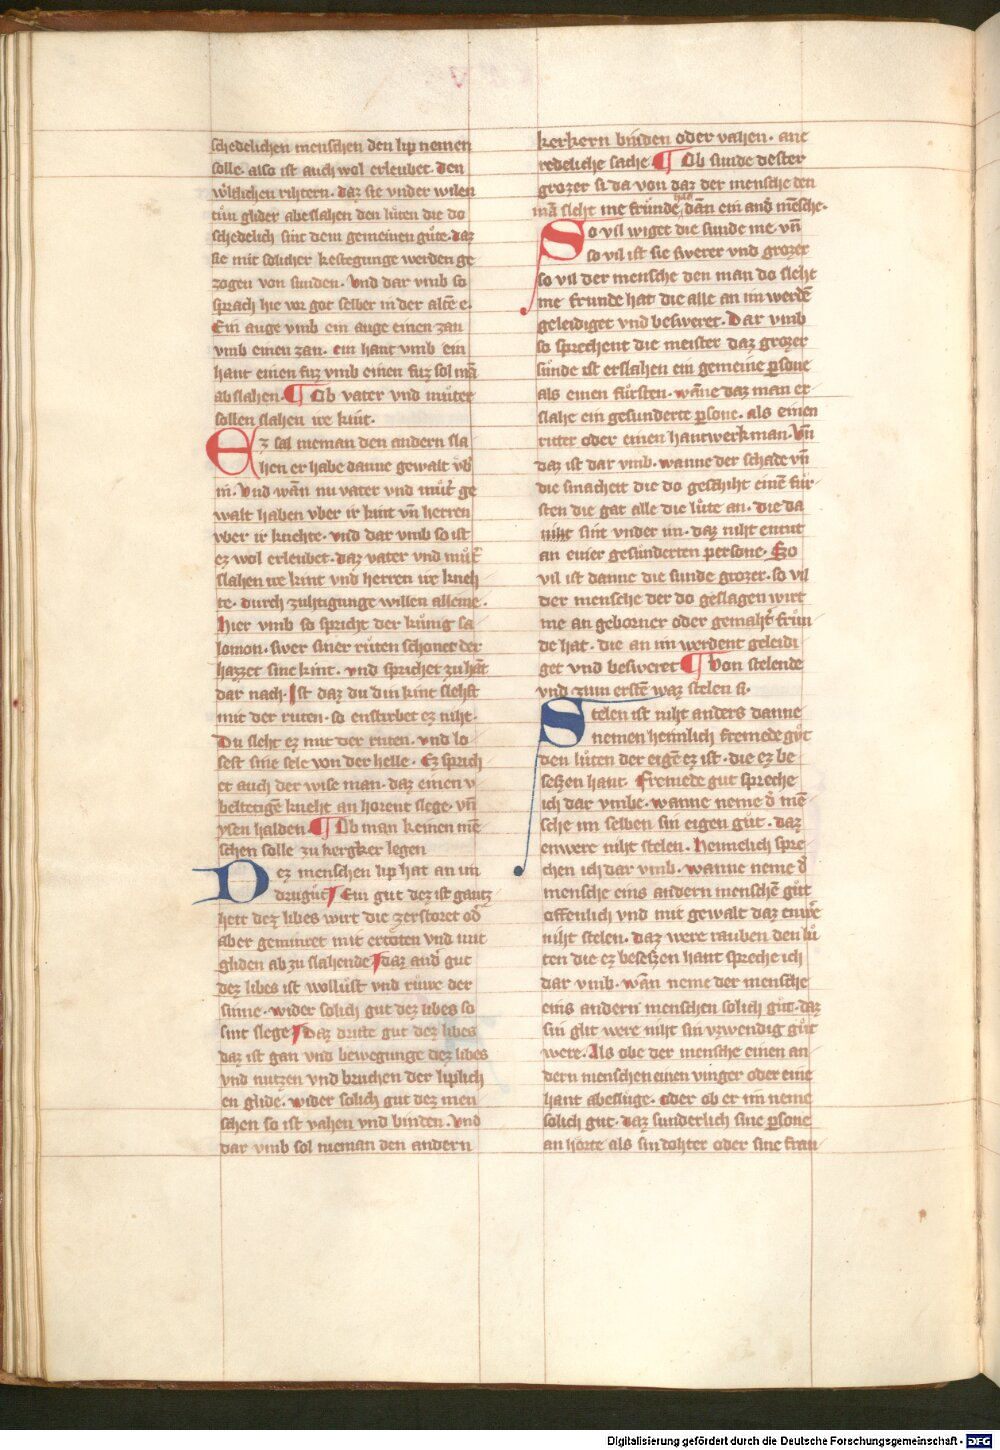 schedelichen menschen den lip nemen
solle. also ist auch wol erleubet. den
wͤltlichen rihtern. daz sie vnder wilen
tuͤn glider abeslahen den luͤten die do
schedelich sint dem gemeinen guͤte. daz
sie mit solicher kestegunge werden ge
zogen von sunden. Vnd dar vmb so
sprach hie vor got selber in der altē e.
Ein auge vmb ein auge einen zan
vmb einen zan. ein hant vmb ein
hant einen fuz vmb einen fuz sol mā
abslahen. ¶ Ob vater vnd muͤter
sollen slahen ire kint.
Ez sal nieman den andern sla
hen er habe danne gewalt vb̾
in. Vnd wān nu vater vnd muͤt̾ ge
walt haben vber ir kint vn̄ herren
vber ir knehte. vnd dar vmb so ist
ez wol erleubet. daz vater vnd muͤt̾
slahen ire kint vnd herren ire kneh
te. durch zuhtigunge willen alleine.
Hier vmb so spricht der kuͤnig sa
lomon. swer siner ruͤten schonet der
hazzet sine kint. vnd sprichet zu hāt
dar nach. Ist daz du din kint slehst
mit der ruten. so enstirbet ez niht.
Du sleht ez mit der ruten. vnd lo
sest sine sele von der helle. Ez sprich
et auch der wise man. daz einen v
beltetigē kneht an horent slege. vn̄
ysen halden. ¶ Ob man keinen mē
schen solle zu kergker legen
Dez menschen lip hat an im
driuguͤt Ein gut dez ist gantz
heit dez libes wirt die zerstoret od̾
aber geminret mit ertoͤten vnd mit
gliden ab zu slahende daz and̾ gut
dez libes ist wollust vnd ruͤwe der
sinne. wider solich gut dez libes so
sint slege Daz dritte gut dez libes
daz ist gan vnd bewegunge dez libes
vnd nutzen vnd bruchen der liplich
en glidē. wider solich gut dez men
schen so ist vahen vnd binden. Vnd
dar vmb sol nieman den andern
kerkern binden oder vahen. ane
redeliche sache ¶ Ob sunde dester
grozer si da von daz der mensche den
mā sleht me fruͤnde hat dān ein and̾ mēsche.
So vil wiget die sunde me vn̄
so vil ist sie swerer vnd grozer
so vil der mensche den man do sleht
me frunde hat die alle an im werdē
geleidiget vnd besweret. Dar vmb
so sprechent die meister daz grozer
suͤnde ist erslahen ein gemeine ꝑsone
als einen fuͤrsten. wāne daz man er
slahe ein gesunderte ꝑsone. als einen
ritter oder einen hantwerkman. Vn̄
daz ist dar vmb. wanne der schade vn̄
die smacheit die do geschiht einē fur
sten die gat alle die luͤte an. die da
niht sint vnder im. daz niht entut
an einer gesunderten persone. So
vil ist danne die sunde grozer. so vil
der mensche der do geslagen wirt
me an geborner oder gemaht̾ fruͤn
de hat. die an im werdent geleidi
get vnd besweret ¶ Von stelende
vnd zum erstē waz stelen si.
Stelen ist niht anders danne
nemen heimlich fremede guͤt
den luͤten der eigē ez ist. die ez be
setzen hant. Fremede gut spreche
ich dar vmbe. wanne neme d̾ mē
sche im selben sin eigen guͤt. daz
enwere niht stelen. Heimelich spre
chen ich dar vmb. wanne neme d̾
mensche eins andern menschē guͤt
offenlich vnd mit gewalt daz enwē
niht stelen. daz were rauben den luͤ
ten die ez besetzen hant spreche ich
dar vmb. wān neme der mensche
eins andern menschen solich guͤt. daz
sin glit were niht sin vzwendig guͤt
were. Als obe der mensche einen an
dern menschen einen vinger oder eine
hant abesluge. oder ob er im neme
solich gut. daz sunderlich sine ꝑsone
an horte als sin tohter oder sine frau
Digitalisierung gefördert durch die Deutsche Forschungsgemeinschaft - DFG